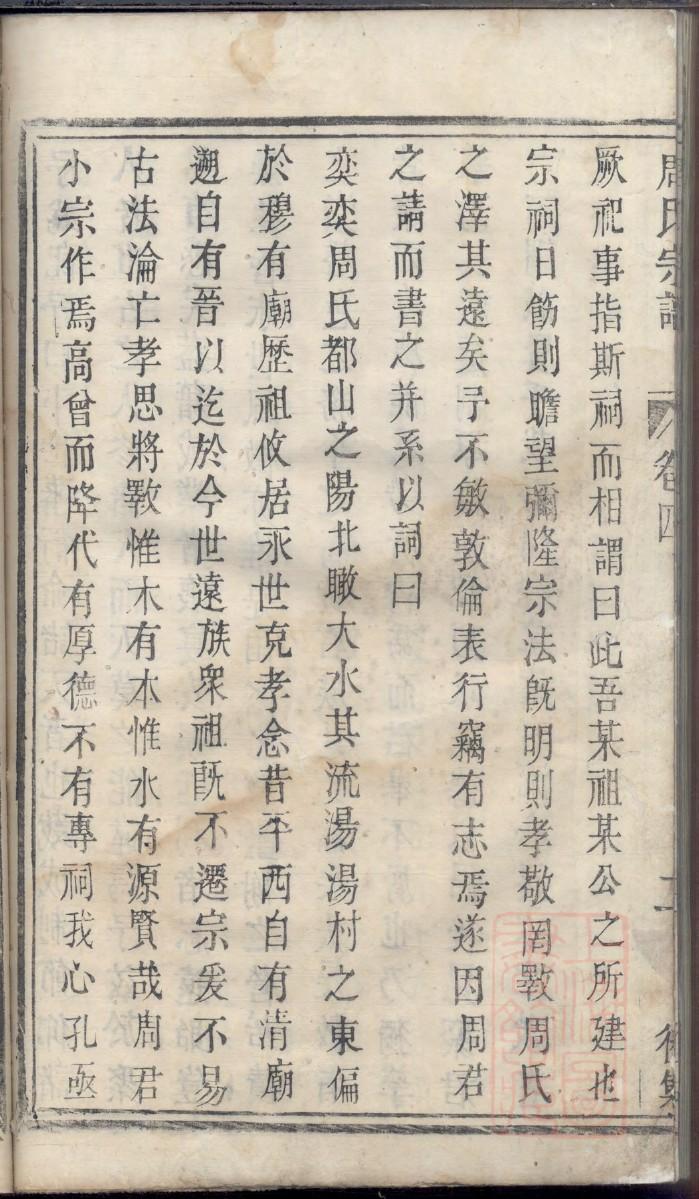 周氏宗譜　卷四　二　德集
厥祀事指斯祠而相謂曰此吾某祖某公之所建也
宗祠日飭則瞻望彌隆宗法旣明則孝敬罔斁周氏
之澤其遠矣予不敏敦倫表行竊有志焉遂因周君
之請而書之并系以詞曰
奕奕周氏都山之陽北瞰大水其流湯湯村之東偏
於穆有廟歷祖攸居永世克孝念昔平西自有淸廟
遡自有晉以迄於今世遠族衆祖旣不遷宗爰不易
古法淪亡孝思將斁惟木有本惟水有源賢哉周君
小宗作焉高曾而降代有厚德不有專祠我心孔亟